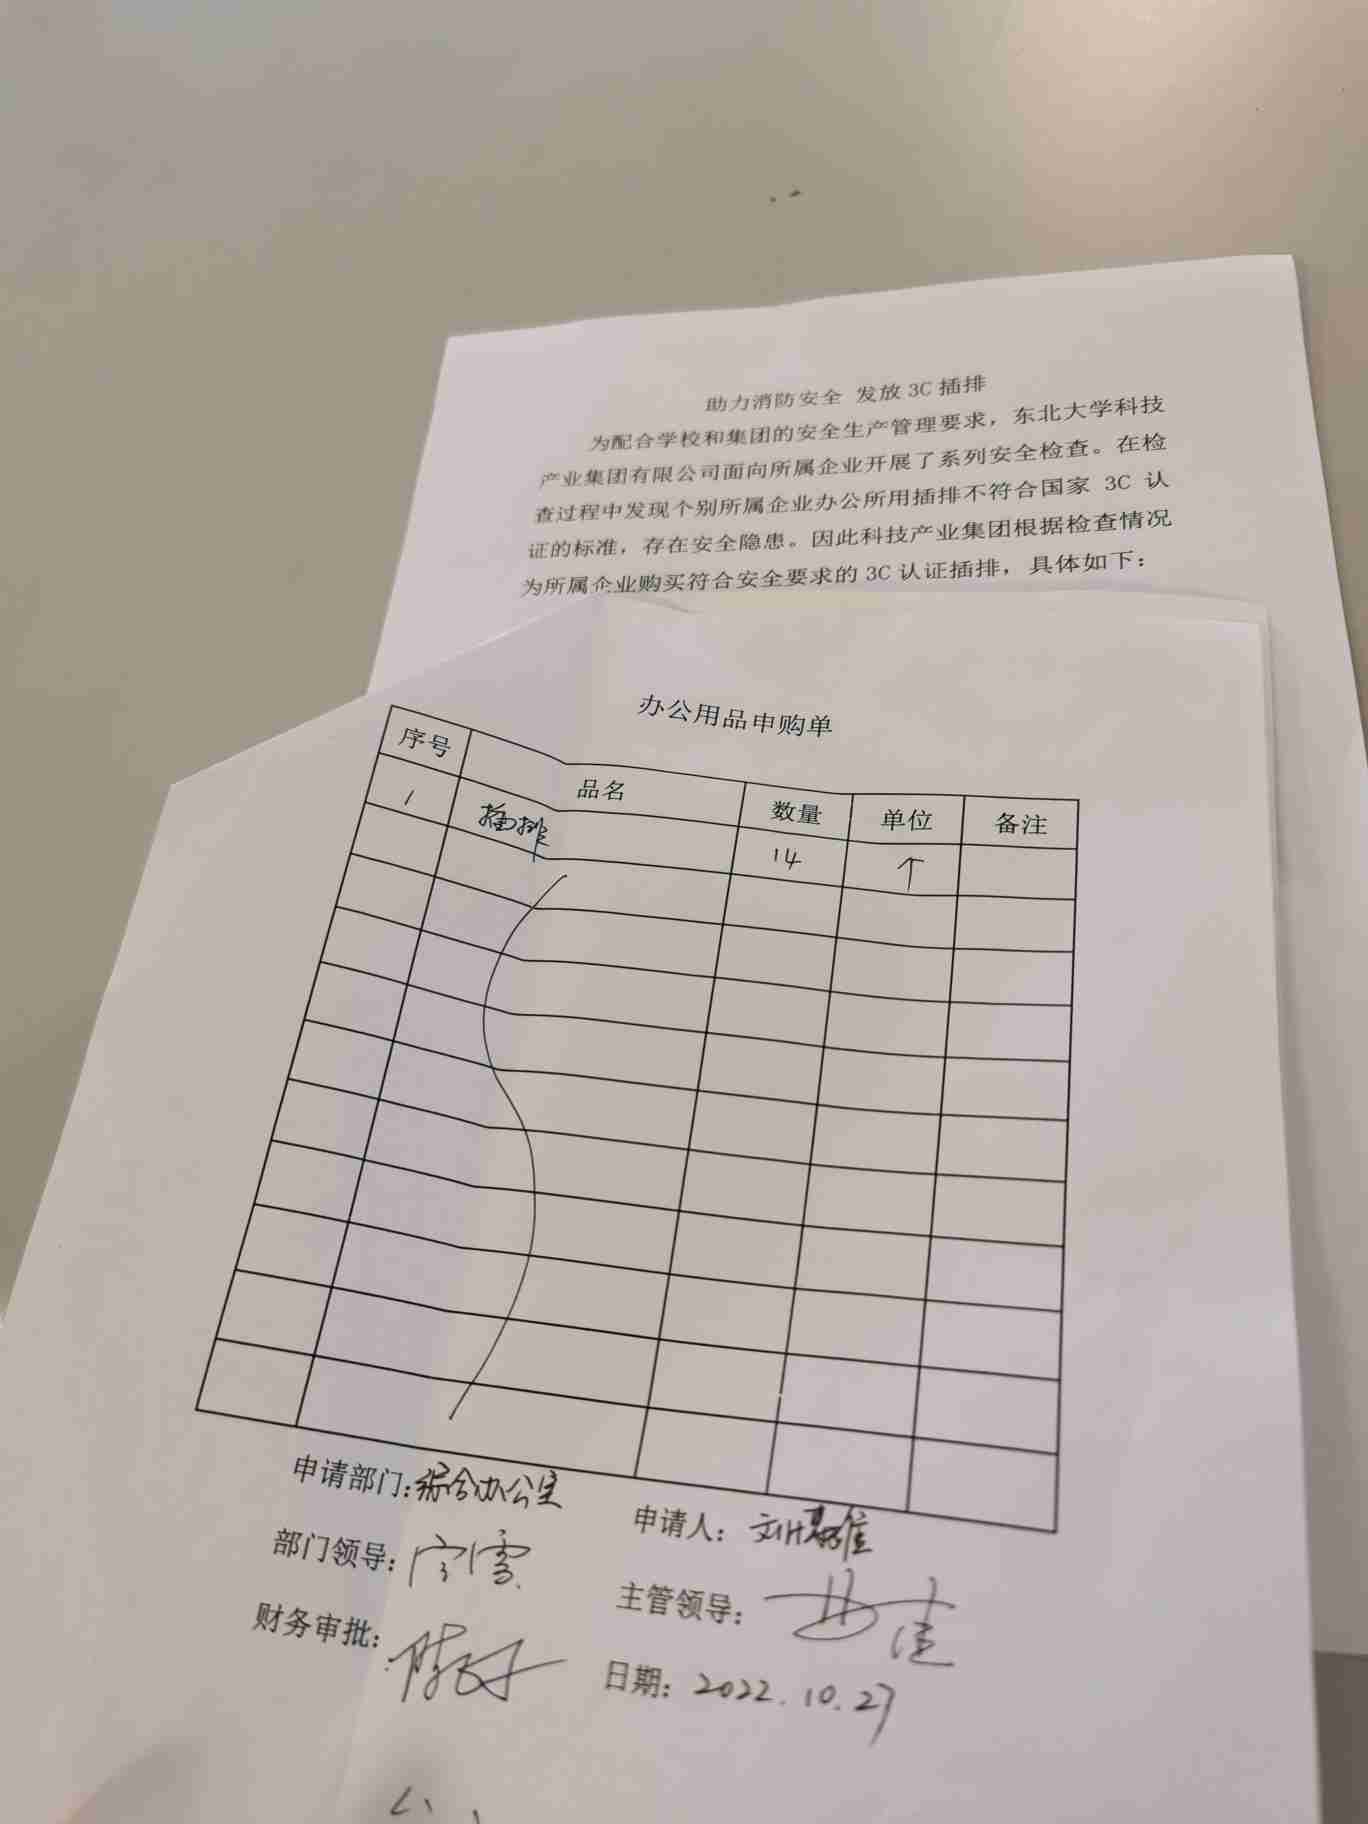 助力消防安全 发放3C插排
为配合学校和集团的安全生产管理要求，东北大学科技
产业集团有限公司面向所属企业开展了系列安全检查。在检
查过程中发现个别所属企业办公所用插排不符合国家 3C 认
证的标准，存在安全隐患。因此科技产业集团根据检查情况
为所属企业购买符合安全要求的3C认证插排，具体如下：
办公用品申购单
序号 品名 数量 单位 备注
1 插排 14 个
申请部门：综合办公室 申请人：
部门领导： 主管领导：
财务审批： 日期：2022.10.27